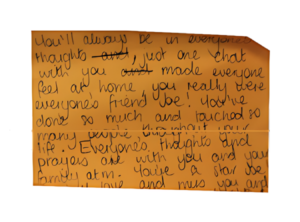 You'll always be in everyone's
thoughts and, just one chat
with you and made everyone
feel at home you really were
everyone's friend Joe! You've
done so much and touched so
many people throughout your
life. Everyone's thoughts and
prayers are with you and your
family atm. You're a star Joe
love and miss you and